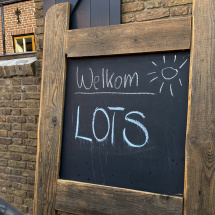 Welkom
LOTS